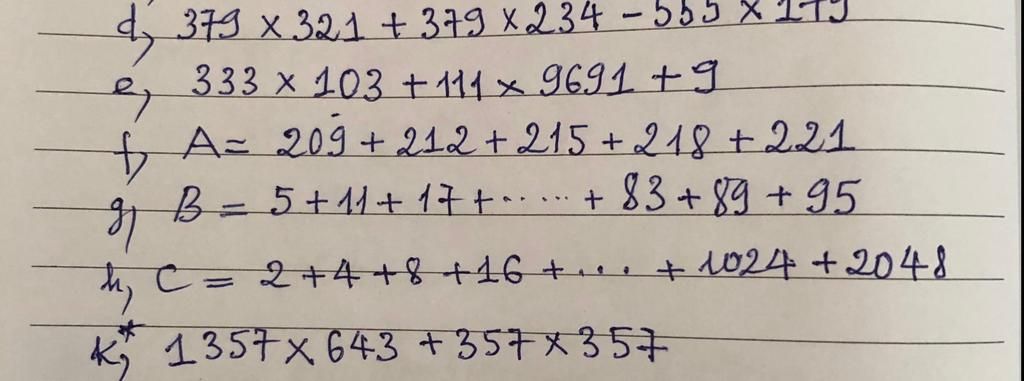 d, 379 × 321 + 379 × 234 - 555 × 179
e, 333 × 103 + 111 × 9691 + 9
f, A = 209 + 212 + 215 + 218 + 221
g, B = 5 + 11 + 17 + ...... + 83 + 89 + 95
h, C = 2 + 4 + 8 + 16 + ... + 1024 + 2048
k,* 1357 × 643 + 357 × 357